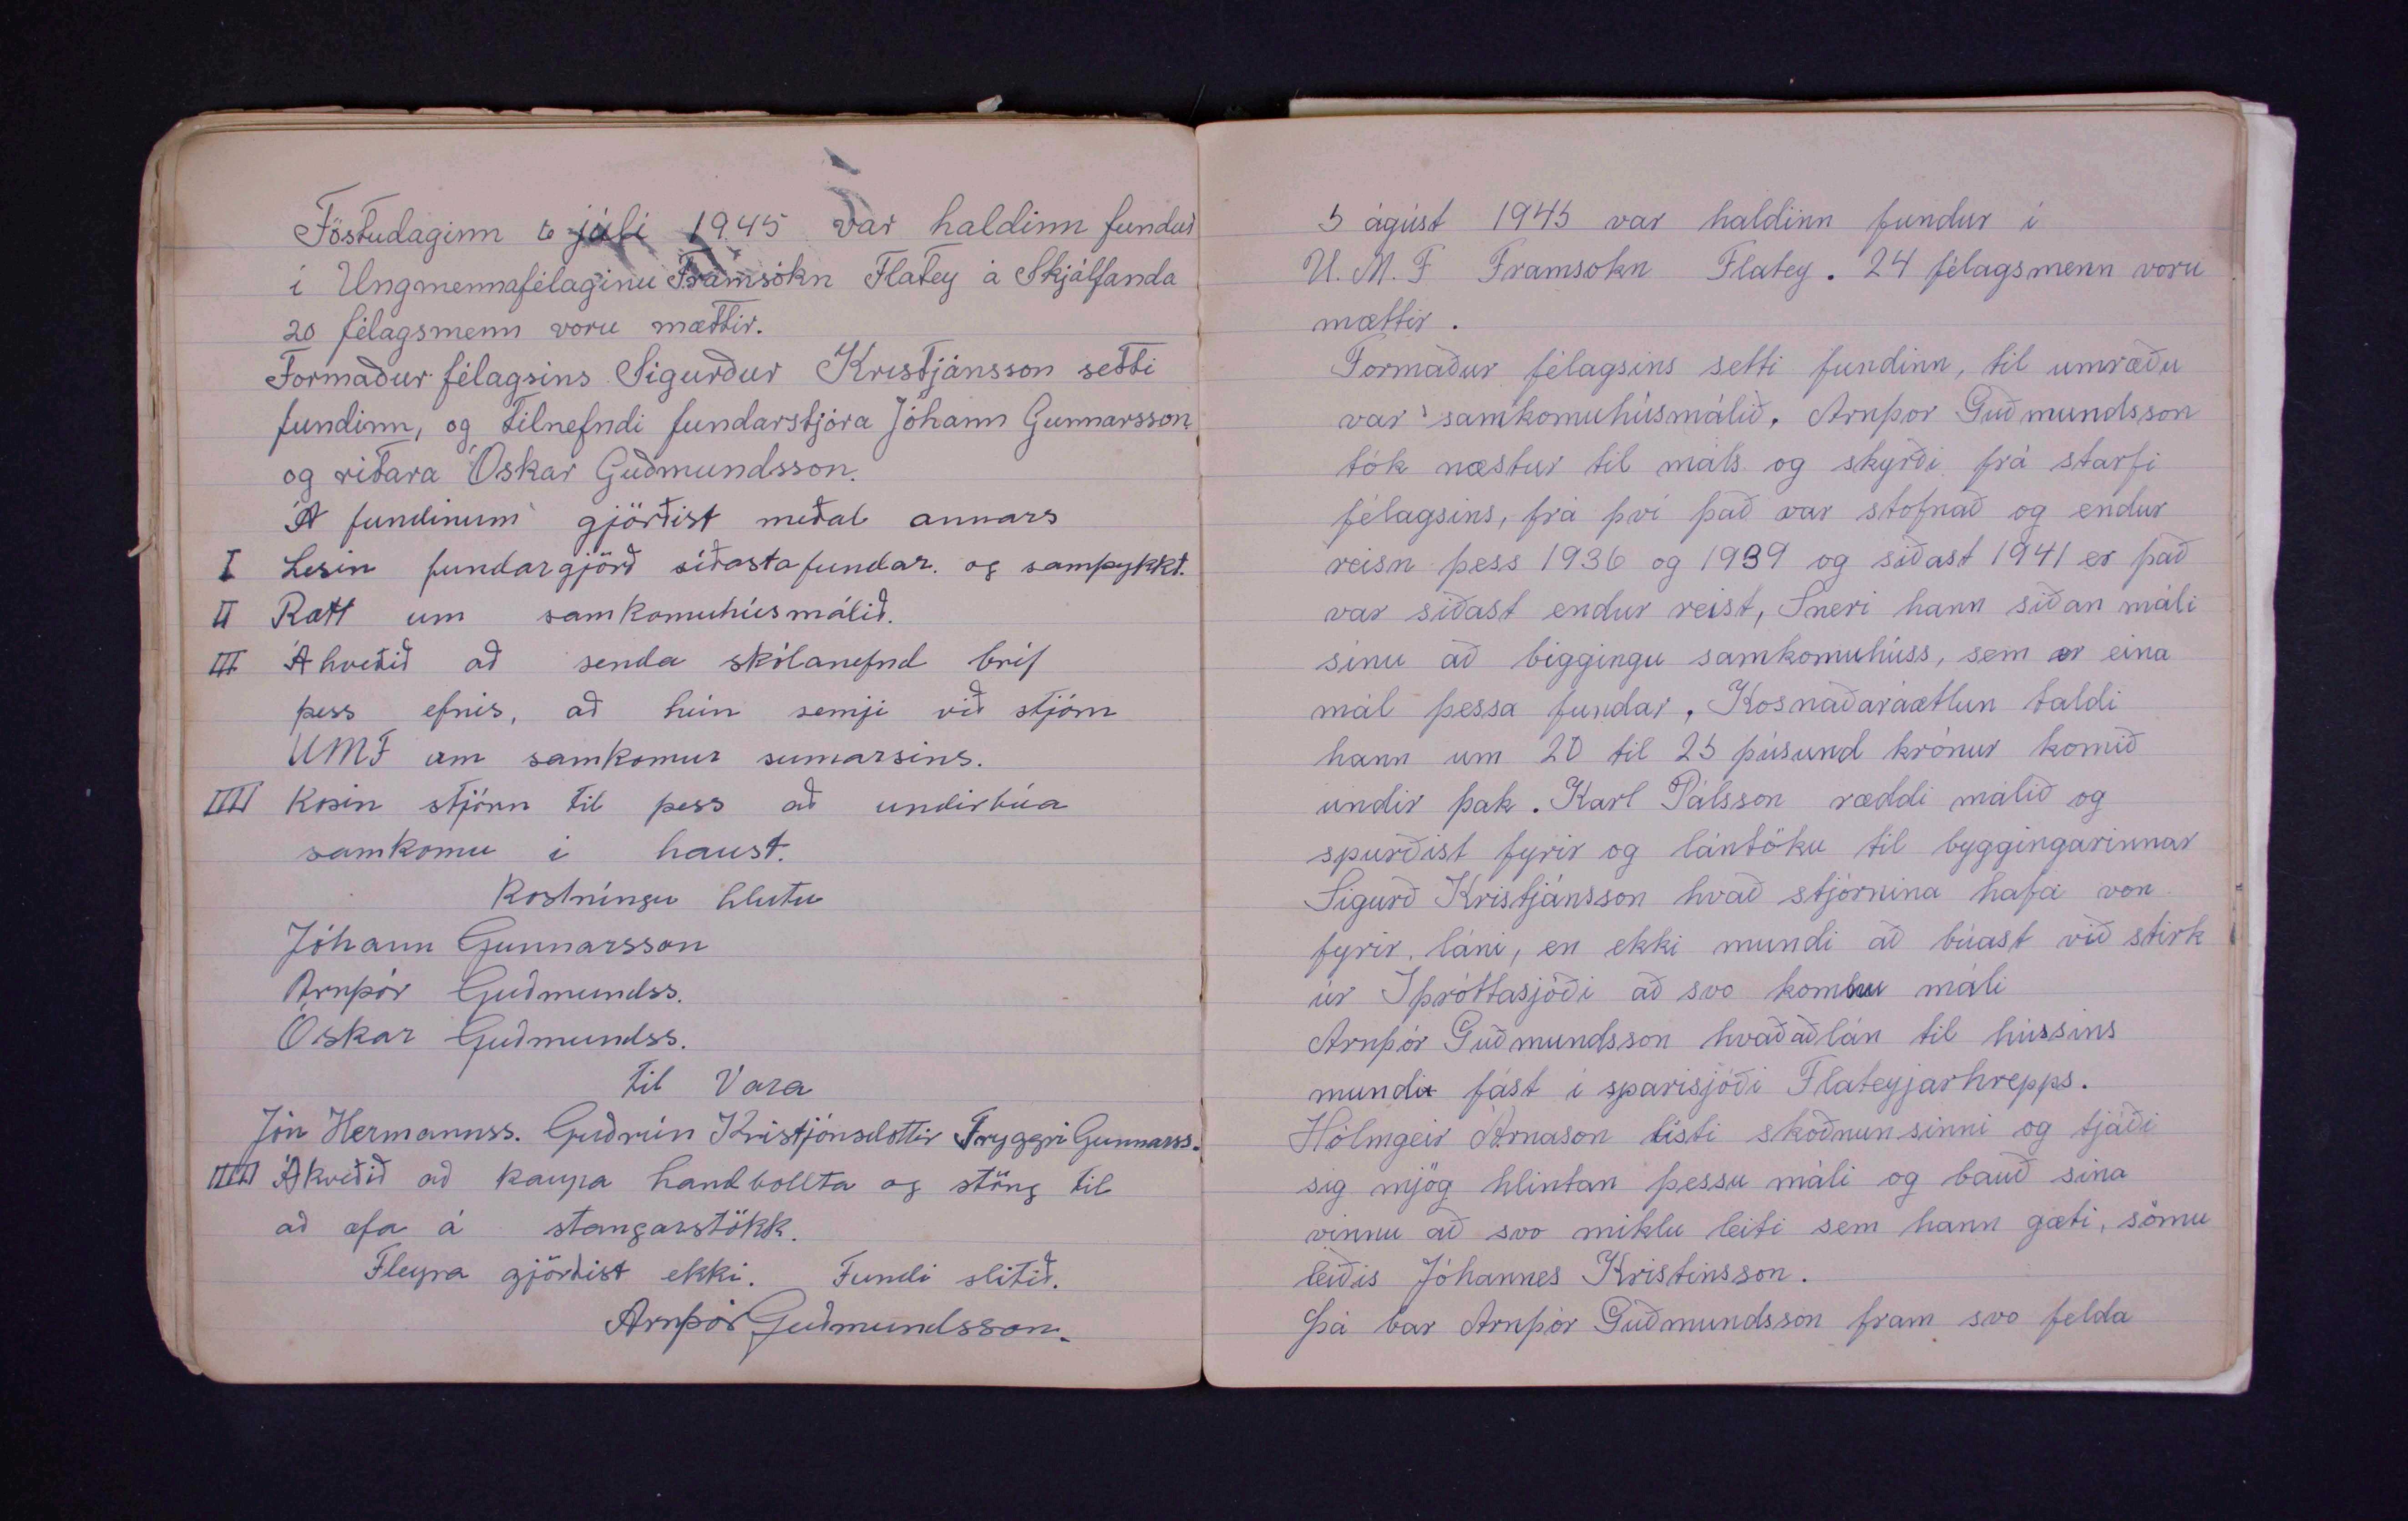 Föstudaginn 6 júli 1945 var haldinn fundur
í Ungmennafélaginu Framsókn Flatey á Skjálfanda
20 félagsmenn voru mættir.
Formaður félagsins Sigurður Kristjánsson setti
fundinn, og tilnefndi fundarstjóra Jóhann Gunnarsson
og ritara Óskar Guðmundsson.
Á fundinum gjörðist meðal annars
I Lesin fundargjörð síðasta fundar. og samþykkt.
II Rætt um samkomuhúsmálið.
III Ahveðið að senda skólanefnd bréf
þess efnis, að hún semji við stjórn
UMF um samkomur sumarsins.
IIII Kosin stjórn til þess að undirbúa
samkomu í haust.
Kostníngu hlutu
Jóhann Gunnarsson
Arnþór Guðmundss.
Óskar Guðmundss.
Til Vara
Jón Hermannss. Guðrún Kristjónsdottir Tryggvi Gunnarss.
IIIII Ákveðið að kaupa handbollta og stöng til
að æfa á stangarstökk.
Fleyra gjörðist ekki. Fundi slitið.
Arnþór Guðmundsson.
5 ágúst 1945 var haldinn fundur í
U. M. F Framsokn Flatey. 24 félagsmenn voru
mættir.
Formaður félagsins setti fundinn, til umræðu
var samkomuhúsmálið. Arnþor Guðmundsson
tók næstur til máls og skyrði frá starfi
félagsins, frá því það var stofnað og endur
reisn þess 1936 og 1939 og síðast 1941 er það
var síðast endur reist, Sneri hann síðan máli
sínu að biggingu samkomuhúss, sem er eina
mál þessa fundar, Kosnaðaráætlun taldi
hann um 20 til 25 þúsund krónur komið
undir þak. Karl Pálsson ræddi málið og
spurðist fyrir og lántöku til byggingarinnar
Sigurð Kristjánsson hvað stjórnina hafa von
fyrir láni, en ekki mundi að búast við stirk
úr Iþróttasjóði að svo komnu máli
Arnþór Guðmundsson hvað að lán til hússins
mundi fást í sparisjóði Flateyjarhrepps.
Hólmgeir Árnason listi skoðnun sinni og tjáði
sig mjög hlintan þessu máli og bauð sína
vinnu að svo miklu leiti sem hann gæti, sömu
leiðis Jóhannes Kristinsson.
Þá bar Arnþór Guðmundsson fram svo felda